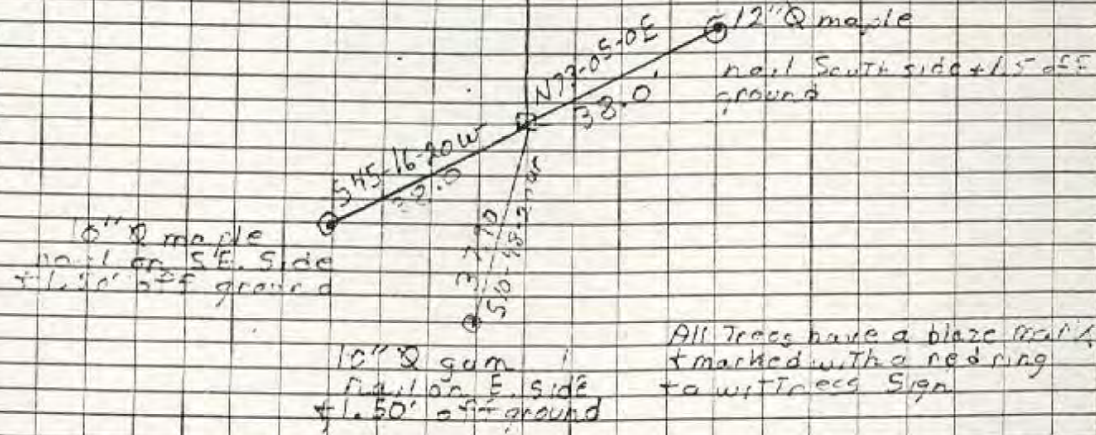 12" Q maple
nail South side +1.5 off
ground
N77-05-0E
38.0'
S45-16-20W
32.0
10" Q maple
nail on S.E. Side
+1.50' off ground
37.90
S10-48-20W
10" Q gum
nail on E. Side
+1.50' off ground
All Trees have a blaze mark
+ marked with a red ring
+ a wittness Sign